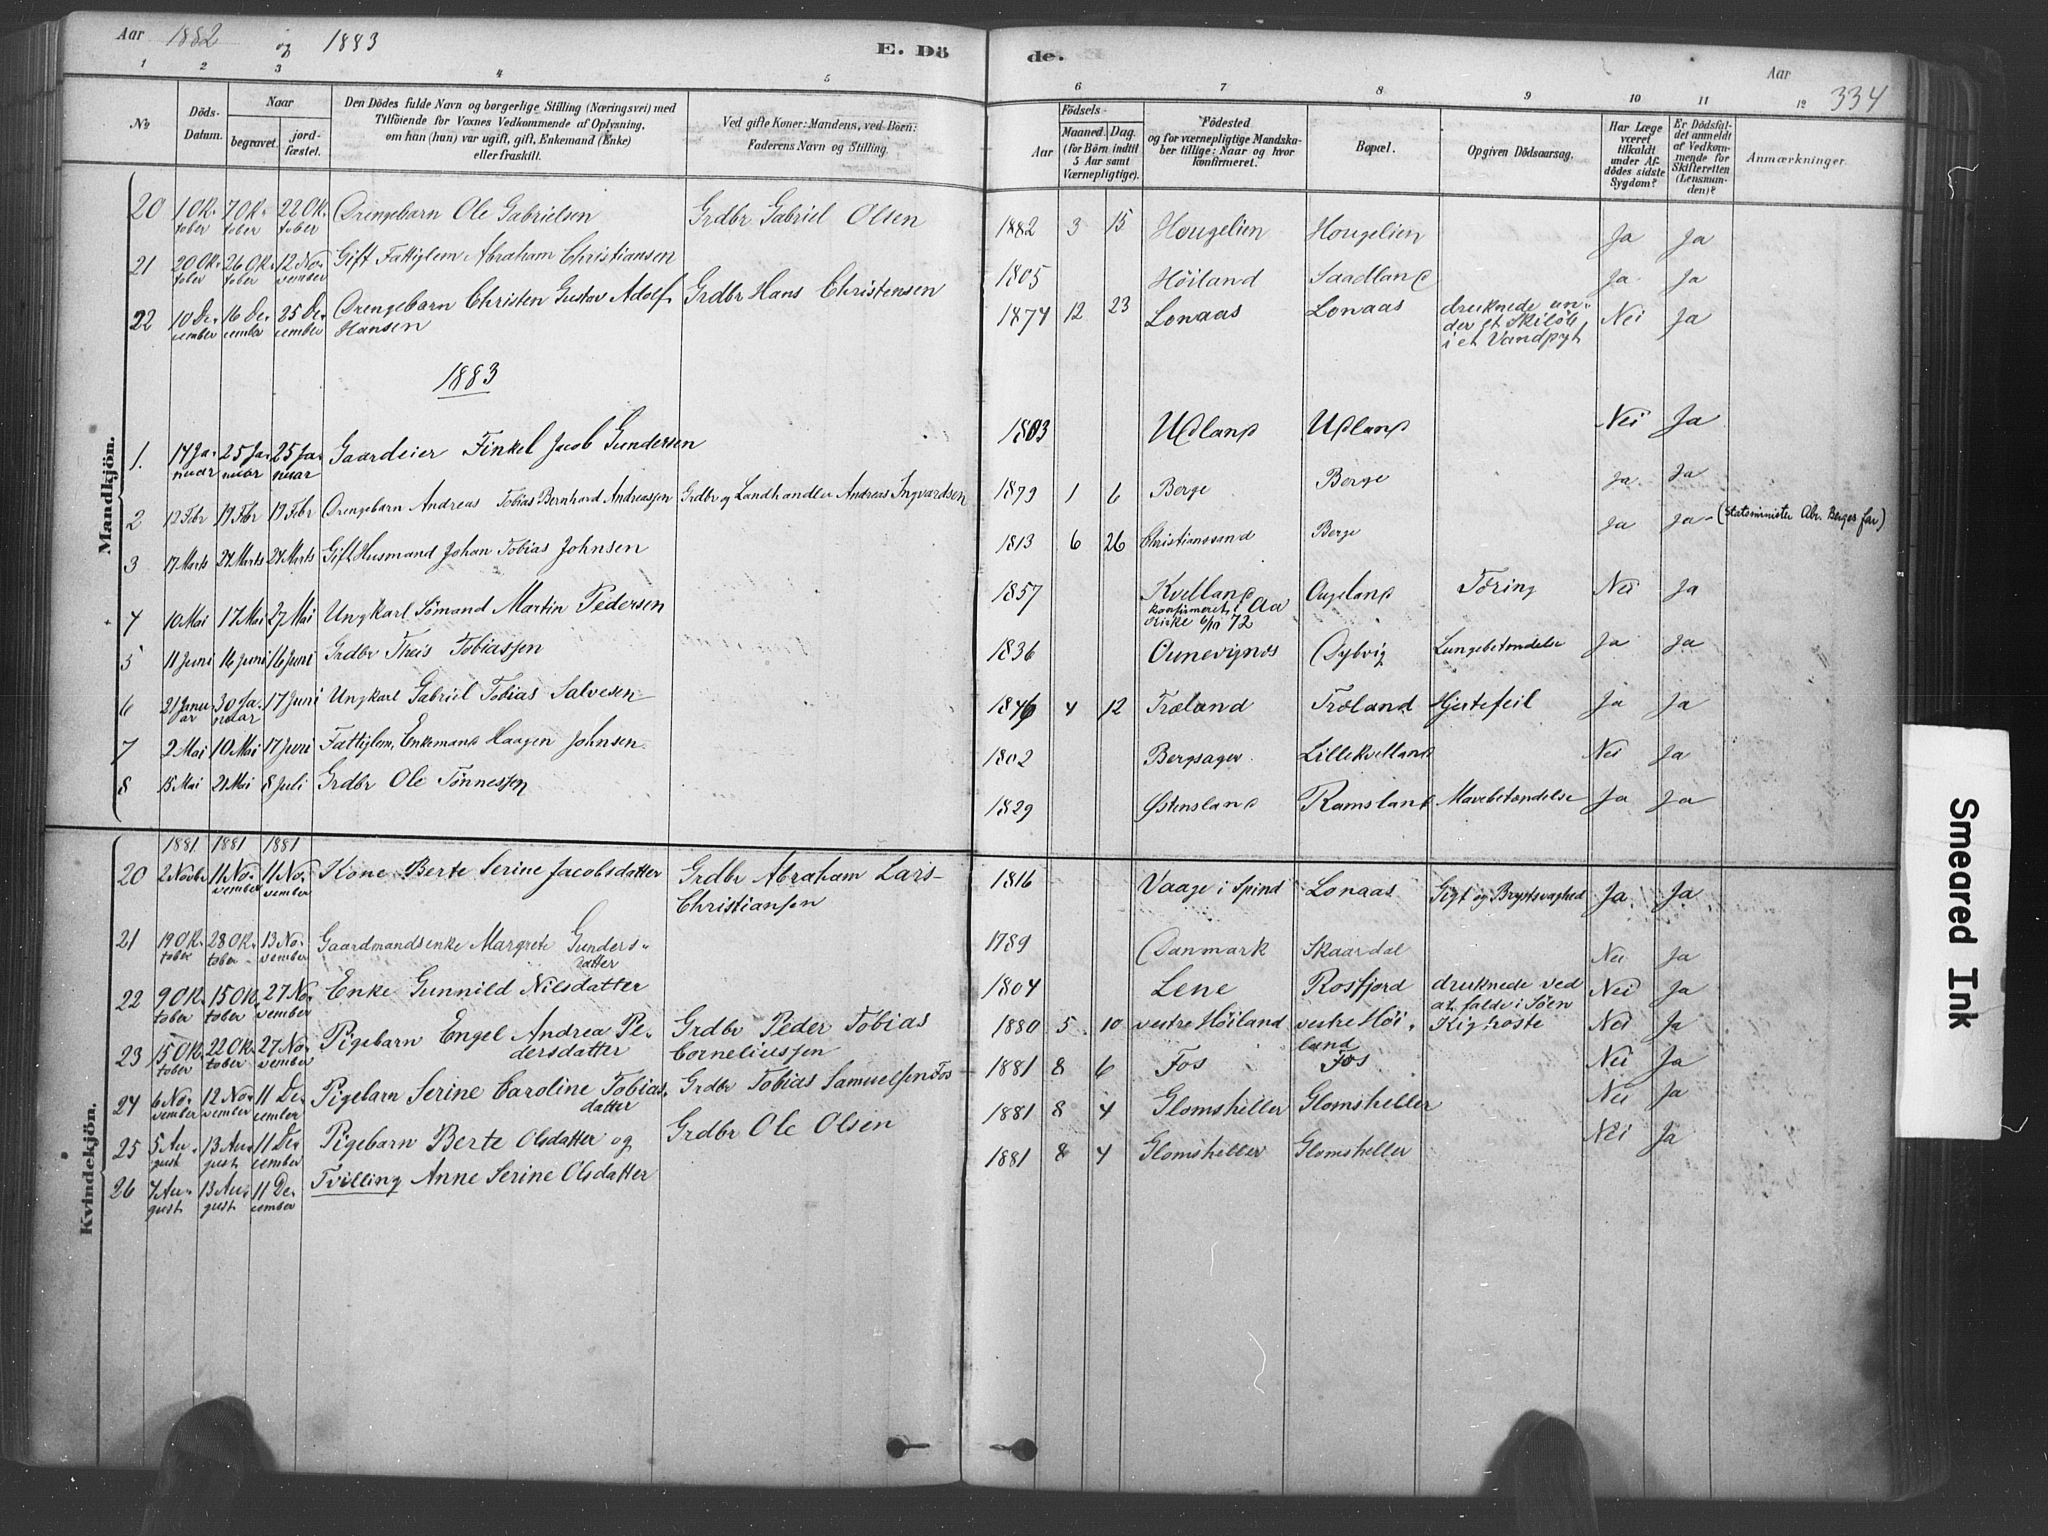 Aar 1882 og 1883 E. Döde. Aar 334
1 2 3 4 5 6 7 8 9 10 11 12
No Döds-Datum. Naar begravet. jordfæstet. Den Dödes fulde Navn og borgerlige Stilling (Næringsvei) med Tilföiende for Voxnes Vedkommende af Oplysning, om han (hun) var ugift, gift, Enkemand (Enke) eller fraskilt. Ved gifte Koner: Mandens, ved Börn: Faderens Navn og Stilling. Födsels- Aar Maaned. Dag. (for Börn indtil 5 Aar samt Værnepligtige). Födested og for værnepligtige Mandskaber tillige: Naar og hvor konfirmeret. Bopæl. Opgiven Dödsaarsag. Har Læge været tilkaldt under Afdödes sidste Sygdom? Er Dödsfaldet anmeldt af Vedkommende for Skifteretten (Lensmanden)? Anmærkninger.
Mandkjön.
20 1 Oktober 7 Oktober 22 Oktober Drengebarn Ole Gabrielsen Grdbr Gabriel Olsen 1882 3 15 Hougelien Hougelien Ja Ja
21 20 Oktober 26 Oktober 12 November Gift Fattiglem Abraham Christiansen 1805 Höiland Saadland Ja Ja
22 10 December 16 December 25 December Drengebarn Christen Gustav Adolf Hansen Grdbr Hans Christensen 1874 12 23 Lonaas Lonaas druknede under et Skilöb i et Vandpyt Nei Ja
1883
1. 14 Januar 25 Januar 25 Januar Gaardeier Finkel Jacob Gundersen 1803 Udland Udland Nei Ja
2 12 Febr 19 Febr 19 Febr Drengebarn Andreas Tobias Bernhard Andreassen Grdbr og Landhandler Andreas Ingvardsen 1879 1 6 Berge Berge Ja Ja
3 17 Marts 24 Marts 24 Marts Gift Husmand Johan Tobias Johnsen 1813 6 26 Christianssand Berge Ja Ja (Statsminister Abr. Berges far)
4 10 Mai 17 Mai 27 Mai Ungkarl Sömand Martin Pedersen 1857 Kvelland konfirmeret i Aa Kirke 6/10 72 Augeland Töring Nei Ja
5 11 Juni 16 Juni 16 Juni Grdbr Theis Tobiassen 1836 Ounevignes Dybvig Lungebetændelse Ja Ja
6 21 Januar 30 Januar 17 Juni Ungkarl Gabriel Tobias Salvesen 1846 4 12 Træland Træland Hjertefeil Ja Ja
7 2 Mai 10 Mai 17 Juni Fattiglem, Enkemand Haagen Johnsen 1802 Bergsager Lillekvelland Nei Ja
8 15 Mai 21 Mai 8 Juli Grdbr Ole Tönnessen 1829 Østensland Ramsland Mavebetændelse Ja Ja
Kvindekjön.
1881 1881 1881
20 2 Novbr 11 November 11 November Kone Berte Serine Jacobsdatter Grdbr Abraham Lars Christiansen 1816 Vaage i Spind Lonaas Gigt og Brystsvaghed Ja Ja
21 19 Oktober 28 Oktober 13 November Gaardmandsenke Margrete Gundersdatter 1789 Danmark Skaardal Nei Ja
22 9 Oktober 15 Oktober 27 November Enke Gunnild Nilsdatter 1804 Lene Rosfjord druknede ved at falde i Søen Nei Ja
23 15 Oktober 22 Oktober 27 November Pigebarn Engel Andrea Pedersdatter Grdbr Peder Tobias Corneliussen 1880 5 10 vestre Höiland vestre Höiland Kighoste Nei Ja
24 6 November 12 November 11 December Pigebarn Serine Caroline Tobiasdatter Grdbr Tobias Samuelsen Fos 1881 8 6 Fos Fos Nei Ja
25 5 August 13 August 11 December Pigebarn Berte Olsdatter og Grdbr Ole Olsen 1881 8 4 Glomsheller Glomsheller Nei Ja
26 7 August 13 August 11 December Tvilling Anne Serine Olsdatter 1881 8 4 Glomsheller Glomsheller Nei Ja
Smeared Ink